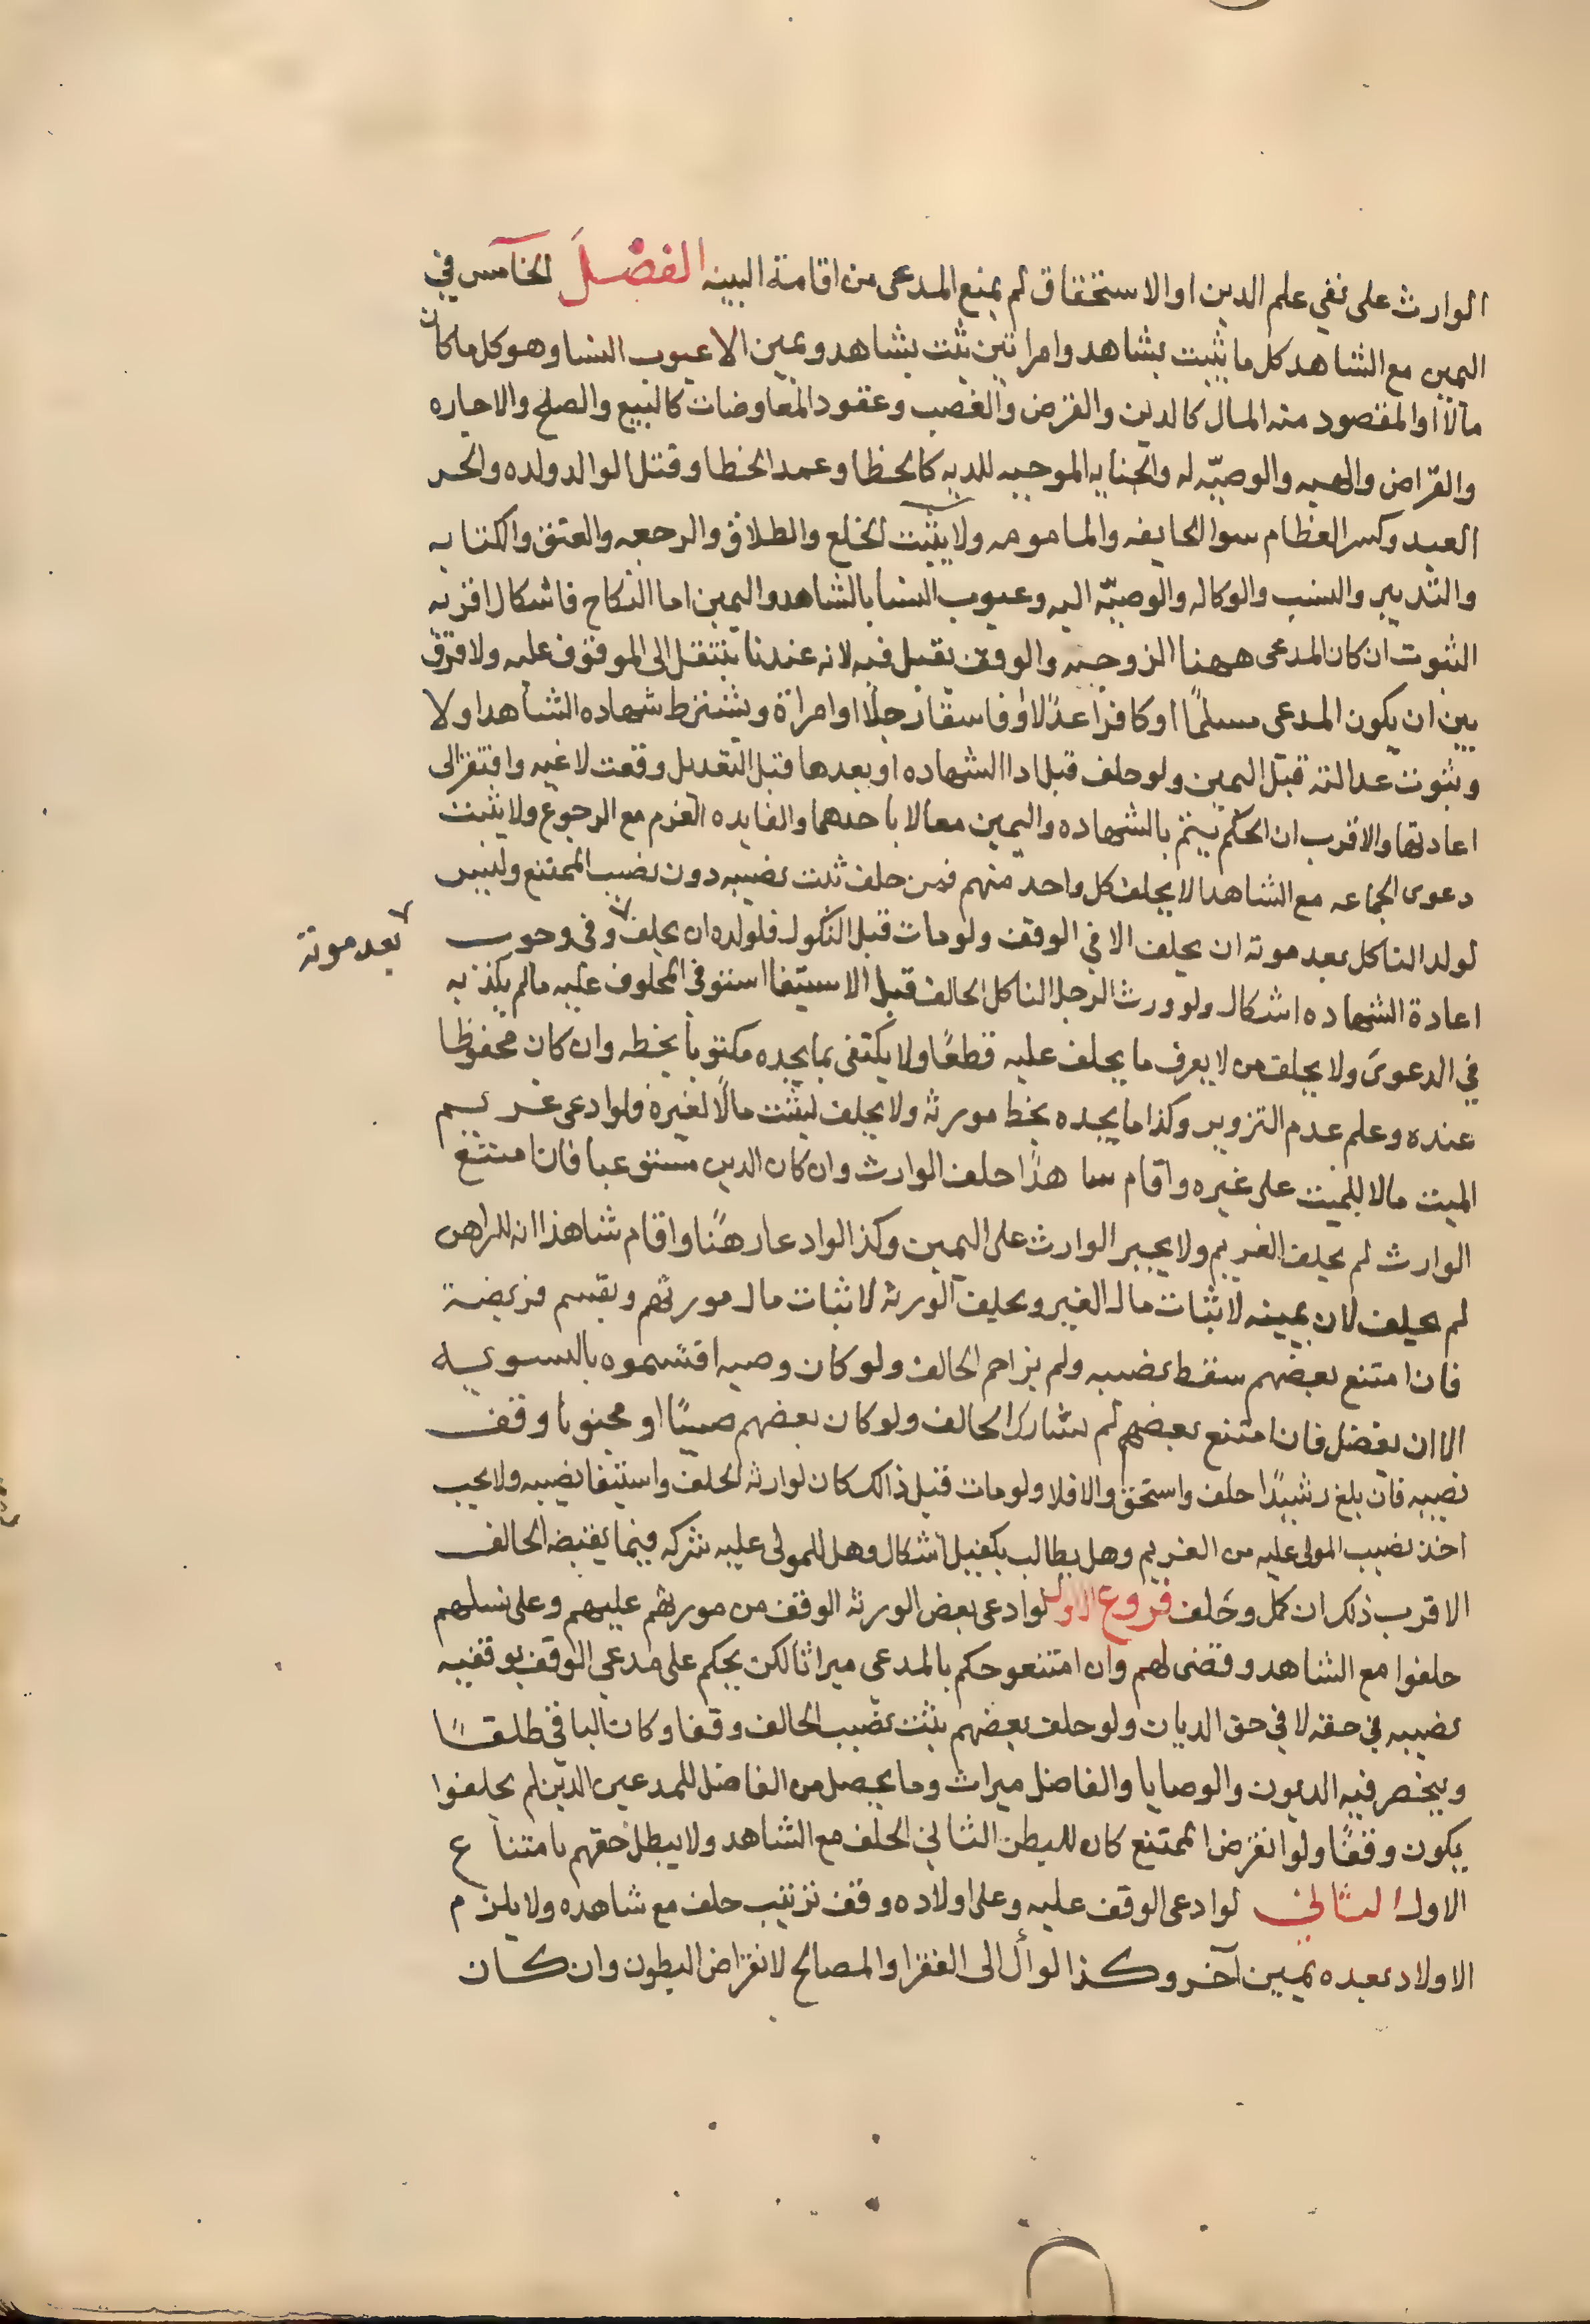 الوارث على نفي علم الدين او الاستحقاق لم يمنع المدعى من اقامة البينه الفصل الخامس في
اليمين مع الشاهد كل ما يثبت بشاهد وامراتين يثبت بشاهد ويمين الا عيوب النسا وهو كل ما كان
مالا او المقصود منه المال كالدين والقرض والغصب وعقود المعاوضات كالبيع والصلح والاجاره
والقراض والهبه والوصيّه له والجنايه الموجبه للديه كالخطا وعمد الخطا وقتل الوالد ولده والحر
العبد وكسر العظام سوا الجايفه والمامومه ولا يثبت الخلع والطلاق والرجعه والعتق والكتابه
والتدبير والنسب والوكاله والوصيّه اليه وعيوب النسا بالشاهد واليمين اما النكاح فاشكال اقربه
الثبوت ان كان المدعى ههنا الزوجيه والوقف يقبل فيه لانه عندنا ينتقل الى الموقوف عليه ولا فرق
بين ان يكون المدعى مسلمًا او كافرا عدلا او فاسقا رجلا او امراة ويشترط شهاده الشاهد اولا
وثبوت عدالته قبل اليمين ولو حلف قبل ادا الشهاده او بعدها قبل التعديل وقعت لاغيه وافتقر الى
اعادتها والاقرب ان الحكم يتم بالشهاده واليمين معا لا باحدهما والفايده الغرم مع الرجوع ولا يثبت
دعوى الجماعه مع الشاهد الا بحلف كل واحد منهم فمن حلف ثبت نصيبه دون نصيب الممتنع وليس
لولد الناكل بعد موته ان يحلف الا في الوقف ولو مات قبل النكول فلولده ان يحلف وفي وجوب
بعد موتة
اعادة الشهاده اشكال ولو ورث الرجل الناكل الحالف قبل الاستيفا استوفى المحلوف عليه مالم يكذبه
في الدعوى ولا يحلف من لا يعرف ما يحلف عليه قطعًا ولا يكتفى بما يجده مكتوبا بخطه وان كان محفوظا
عنده وعلم عدم التزوير وكذا ما يجده بخط مورثه ولا يحلف ليثبت مالًا لغيره فلو ادعى غريم
الميت مالا للميت على غيره واقام شاهدًا حلف الوارث وان كان الدين مستوعبا فان امتنع
الوارث لم يحلف الغريم ولا يجبر الوارث على اليمين وكذا لو ادعا رهنًا واقام شاهدا انه للراهن
لم يحلف لان يمينه لاثبات مال الغير ويحلف الورثه لاثبات مال مورثهم ويقسم فريضة
فان امتنع بعضهم سقط نصيبه ولم يزاحم الحالف ولو كان وصيه اقتسموه بالسويه
الا ان يفضل فان امتنع بعضهم لم يشارك الحالف ولو كان بعضهم صبيًا او مجنونا وقف
نصيبه فان بلغ رشيدًا حلف واستحق والا فلا ولو مات قبل ذالك كان لوارثه الحلف واستيفا نصيبه ولا يجب
اخذ نصيب المولى عليه من الغريم وهل يطالب بكفيل اشكال وهل للمولى عليه شركه فيما يقبضه الحالف
الاقرب ذلك ان كمل وحَلف فروع الاول لو ادعى بعض الورثه الوقف من مورثهم عليهم وعلى نسلهم
حلفوا مع الشاهد وقضى لهم وان امتنعو حكم بالمدعى ميراثا لكن يحكم على مدعي الوقف بوقفيه
نصيبه في حقه لا في حق الديان ولو حلف بعضهم يثبت نصيب الحالف وقفا وكان الباقي طلقًا
ويخصر فيه الديون والوصايا والفاضل ميراث وما يحصل من الفاضل للمدعين الذين لم يحلفوا
يكون وقفًا ولو انقرض الممتنع كان للبطن الثاني الحلف مع الشاهد ولا يبطل حقهم بامتناع
الاول الثاني لو ادعى الوقف عليه وعلى اولاده وقف ترتيب حلف مع شاهده ولا يلزم
الاولاد بعده يمين آخر وكذا لو آل الى الفقرا والمصالح لانقراض البطون وان كان